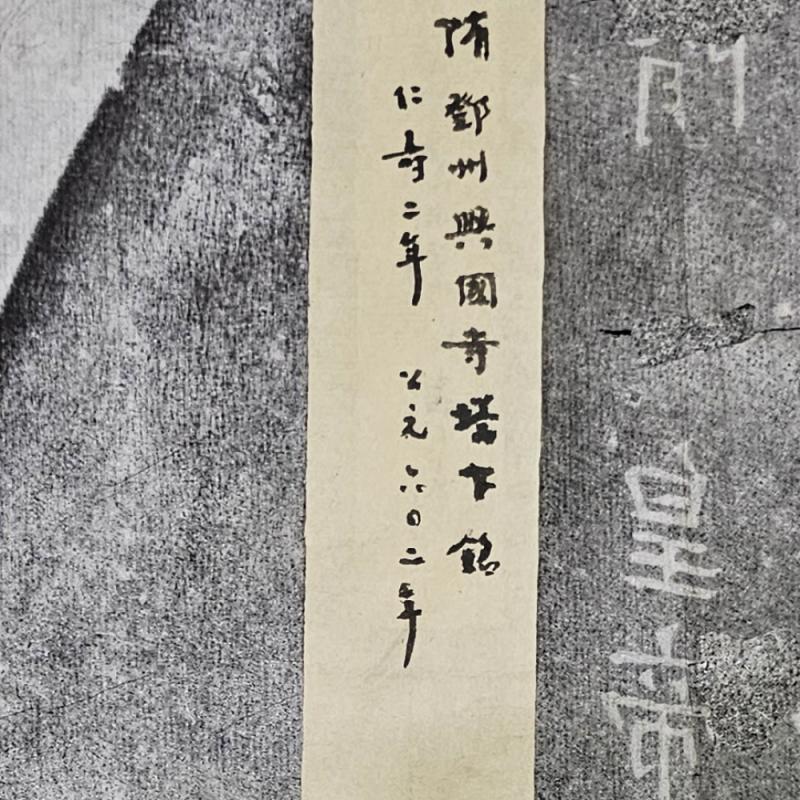 隋鄧州興國寺塔下銘
仁寿二年 公元六〇二年
皇帝